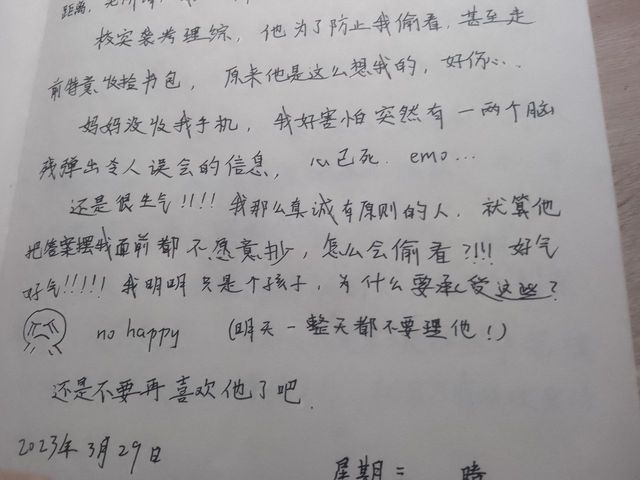 距离，
核实装考理综，他为了防止我偷看，甚至走
前特意收捡书包，原来他是这么想我的，好你…
妈妈没收我手机，我好害怕突然有一两个脑
残弹出令人误会的信息，心已死．emo…
还是很生气！！！！我那么真诚有原则的人．就算他
把答案摆我面前都不愿意抄，怎么会偷看？！！！好气
好气！！！！！我明明只是个孩子，为什么要承受这些？
no happy （明天一整天都不要理他！）
还是不要再喜欢他了吧．
2023年3月29日
星期二 晴